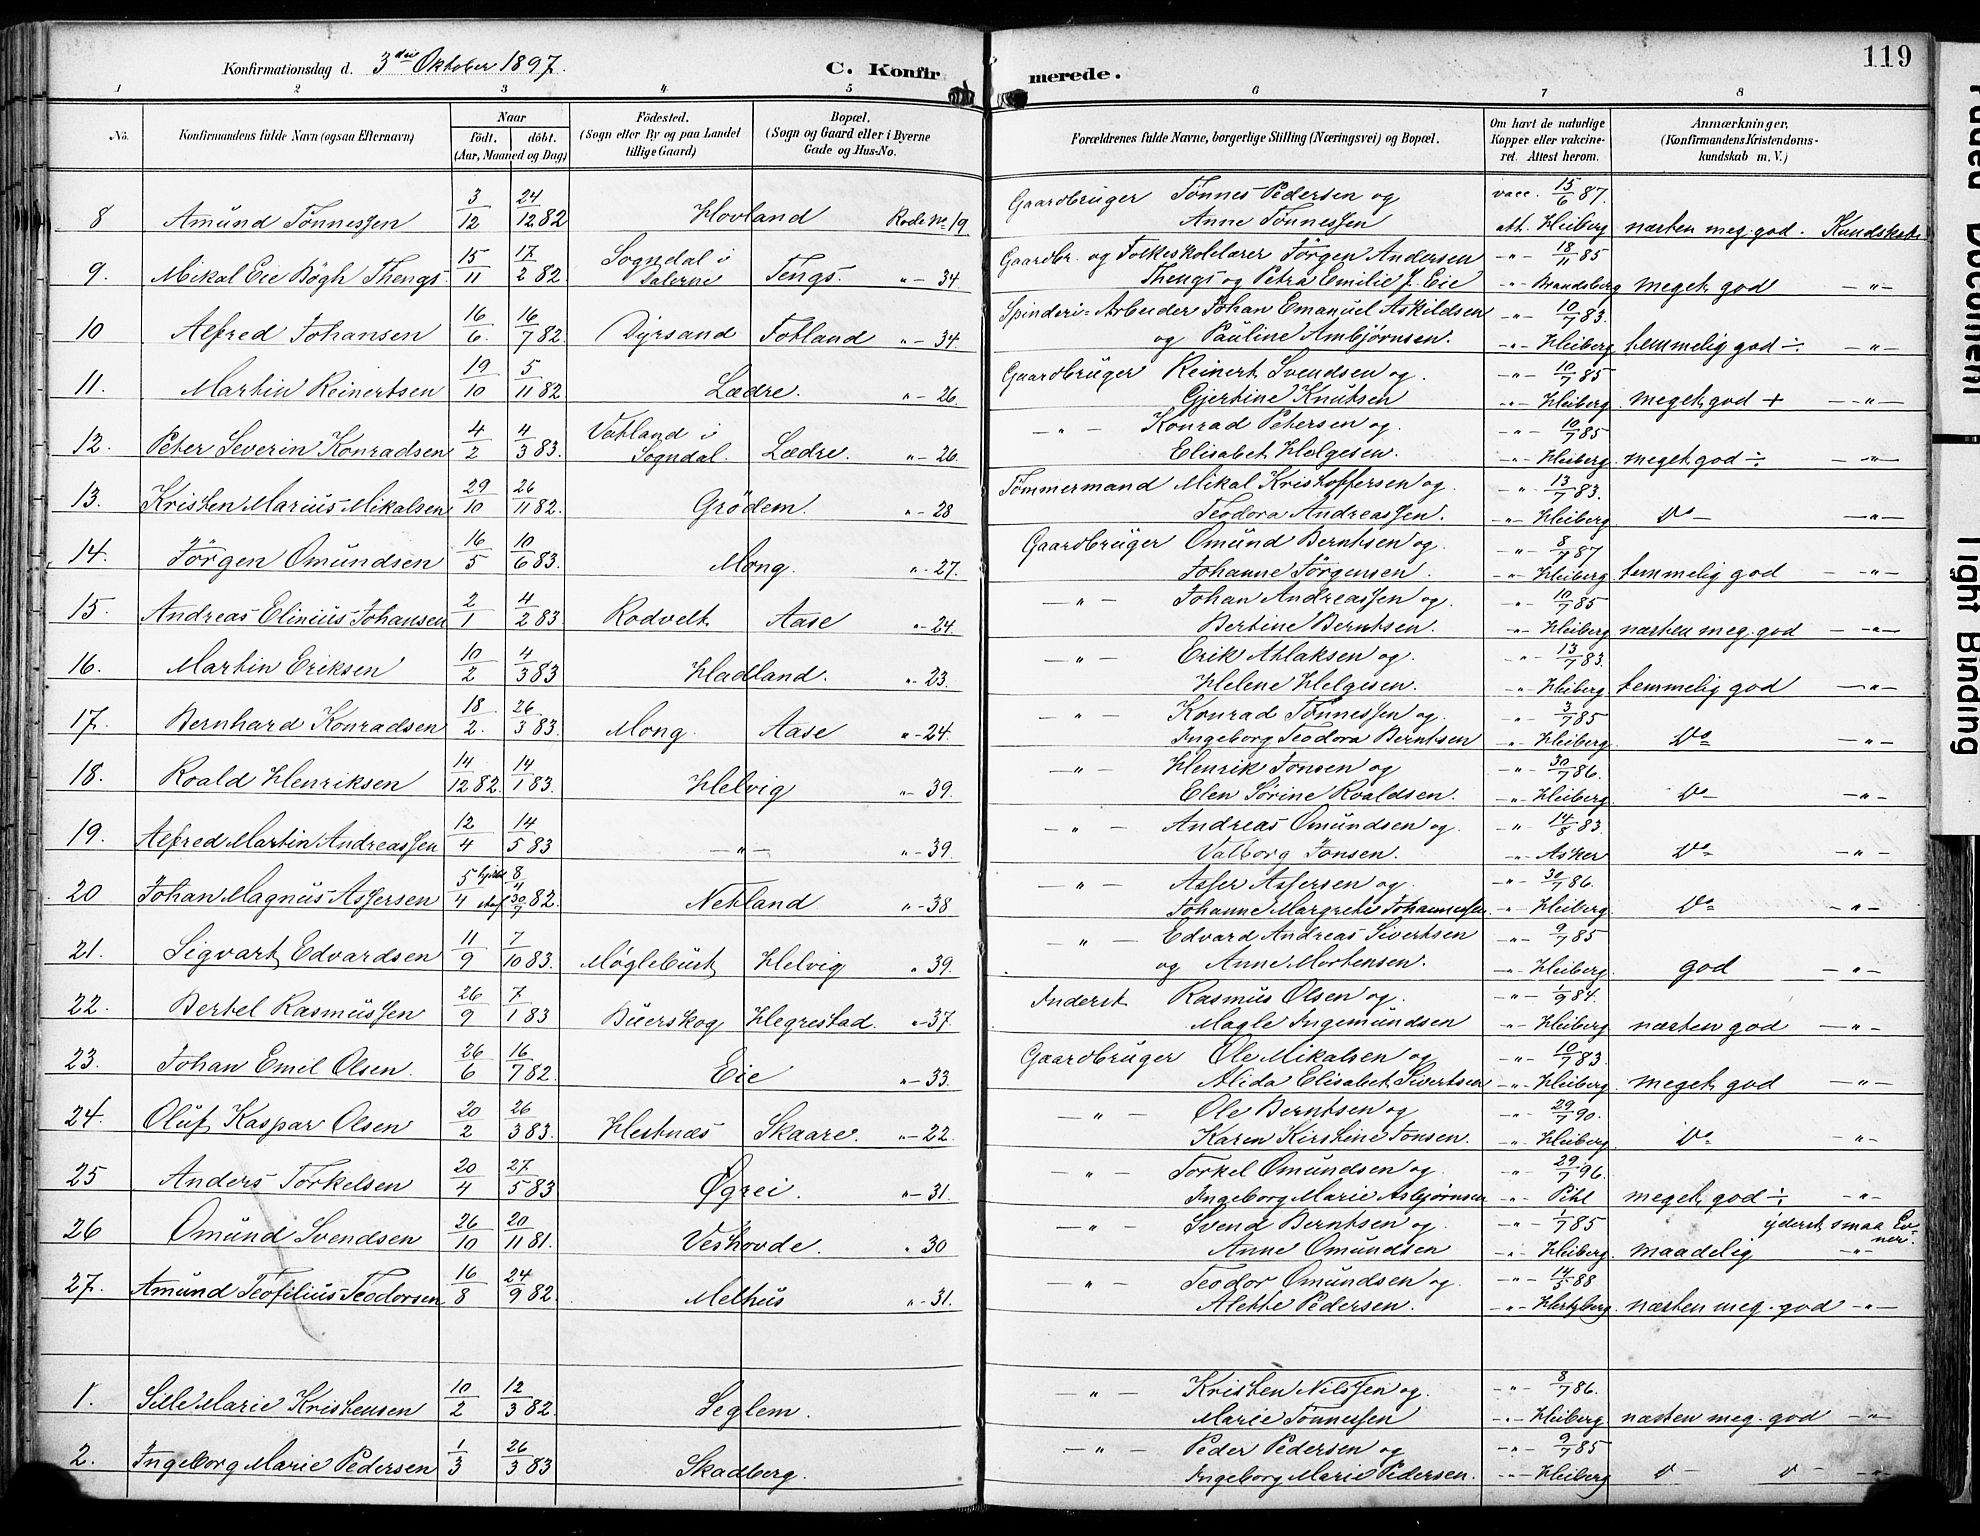 Konfirmationsdag d. 3die Oktober 1897. C. Konfirmerede. 119
1 2 3 4 5 6 7 8
No. Konfirmandens fulde Navn (ogsaa Efternavn) Naar födt. döbt. (Aar, Maaned og Dag) Födested. (Sogn eller By og paa Landet tillige Gaard) Bopæl. (Sogn og Gaard eller i Byerne Gade og Hus-No. Forældrenes fulde Navne, borgerlige Stilling (Næringsvei) og Bopæl. Om havt de naturlige Kopper eller vakcineret. Attest herom. Anmærkninger, (Konfirmandens Kristendomskundskab m. V.)
8 Amund Tønnessen 3/12 24/12 82 Hovland Rode No 19 Gaardbruger Tønnes Pedersen og vacc. 15/6 87.
Anne Tønnessen att. Heiberg næsten meg. god. Kundskab
9. Mikal Eie Bögh Thengs 15/11 17/2 82. Sogndal i Dalerne Tengs. " - 34. Gaardbr. og Folkeskolelærer Jörgen Andersen -"- 18/11 85
Thengs og Petra Emilie J. Eie -"- Brandsberg meget god -"-
10 Alfred Johansen 16/6. 16/7 82. Dyrsand Totland " - 34. Spinderi-Arbeider Johan Emanuel Askildsen -"- 10/7 83.
og Pauline Ambjørnsen. -"- Heiberg temmelig god ÷ -"-
11. Martin Reinertsen 19/10 5/11 82 Lædre. " - 26. Gaardbruger Reinert Svendsen og -"- 10/7 85
Gjertine Knutsen -"- Heiberg. meget god + -"-
12. Peter Severin Konradsen 4/2 4/3 83. Vatland i Sogndal. Lædre. " - 26. -"- Konrad Petersen og -"- 10/7 85
Elisabet Helgesen. -"- Heiberg. meget god ÷ -"-
13. Kristen Marius Mikalsen 29/10 26/11 82. Grödem. " - 28 Tømmermand Mikal Kristoffersen og -"- 13/7 83.
Teodora Andreassen. -"- Heiberg Do -"-
14. Jörgen Omundsen 16/5 10/6 83. Mong. " - 27. Gaardbruger Omund Berntsen og -"- 8/7 87
Johanne Jørgensen. -"- Heiberg. temmelig god -"-
15. Andreas Elinius Johansen 2/1 4/2 83. Rodvelt Aase " - 24. -"- Johan Andreassen og -"- 10/7 85
Bertine Berntsen. -"- Heiberg næsten meg. god -"-
16. Martin Eriksen 10/2 4/3 83 Hadland. " - 23. -"- Erik Atlaksen og -"- 13/7 83.
Helene Helgesen. -"- Heiberg temmelig god -"-
17. Bernhard Konradsen 18/2. 26/3 83. Mong. Aase " - 24. -"- Konrad Tønnessen og -"- 3/7 85
Ingeborg Teodora Berntsen -"- Heiberg. Do -"-
18. Roald Henriksen 14/12 82. 14/1 83. Helvig " - 39. -"- Henrik Jonsen og -"- 30/7 86.
Elen Sörine Roaldsen. -"- Heiberg. Do -"-
19. Alfred Martin Andreassen 12/4 14/5 83 -"- " - 39. -"- Andreas Omundsen og -"- 14/8 83.
Valborg Jonsen. -"- Asker Do -"-
20 Johan Magnus Assersen 5/4 8/4 30/7 82. Netland " - 38 -"- Asser Assersen og -"- 30/7 86.
Johanne Margrete Johannessen. -"- Heiberg. Do -"-
21. Sigvart Edvardsen 11/9 7/10 83. Møglebust Helvig " 39. -"- Edvard Andreas Sivertsen -"- 9/7 85
og Anne Mortensen. -"- Heiberg. god -"-
22. Bertel Rasmussen 26/9 7/1 83 Buerskog Hegrestad. " - 37. Inderst Rasmus Olsen og -"- 1/9 84.
Magle Ingemundsen -"- Heiberg næsten god -"-
23. Johan Emil Olsen. 26/6 16/7 82. Eie " - 33. Gaardbruger Ole Mikalsen og -"- 10/7 83.
Alida Elisabet Sivertsen -"- Heiberg. meget god -"-
24. Oluf Kaspar Olsen 20/2 26/3 83. Hestnæs Skaare. " - 22. -"- Ole Berntsen og -"- 29/7 90.
Karen Kirstine Jonsen. -"- Heiberg. Do -"-
25 Anders Torkelsen 20/4 27/5 83 Øgrei. " - 31. -"- Torkel Omundsen og -"- 29/7 96.
Ingeborg Marie Asbjørnsen -"- Pihl meget god ÷ -"-
26 Omund Svendsen 26/10 20/11 81. Veshovde. " 30 -"- Svend Berntsen og -"- 1/7 85 yderst smaa Evner.
Anne Omundsen -"- Heiberg. maadelig -"-
27. Amund Teofilius Teodorsen 16/8 24/9 82. Melhus " - 31. -"- Teodor Omundsen og -"- 14/5 88
Alette Pedersen. -"- Hertzberg. næsten meg. god -"-
1. Sille Marie Kristensen 10/2 12/3 82. Seglem. -"- Kristen Nilssen og -"- 8/7 86.
Marie Tønnessen -"- Heiberg næsten meg. god -"-
2. Ingeborg Marie Pedersen 1/3 26/3 83 Skadberg. -"- Peder Pedersen og -"- 9/7 85
Ingeborg Marie Pedersen. -"- Heiberg D - D - -"-
Faded Document
Tight Binding